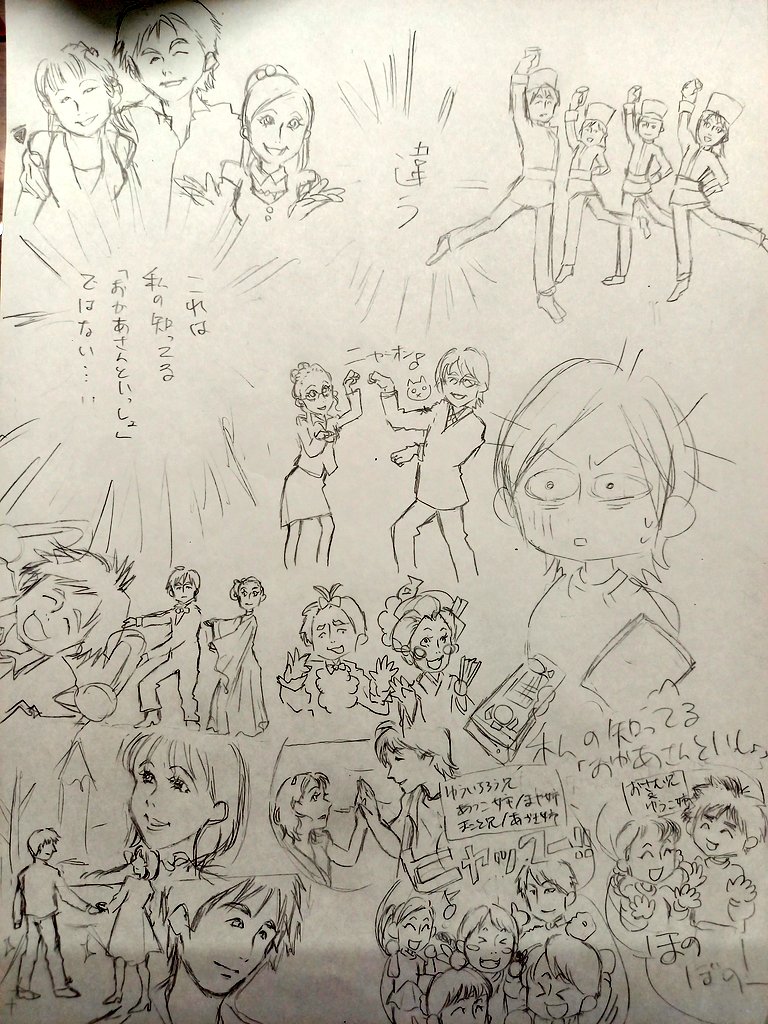 違う
これは
私の知ってる
「おかあさんといっしょ」
ではない……
ニャーオン♪
私の知ってる
「おかあさんといっしょ」
ゆういちろう兄
あつこ姉/まや姉
まこと兄/
おさむ兄
&
ゆうこ姉
ヤッスー
♪
ほの
ぼのー